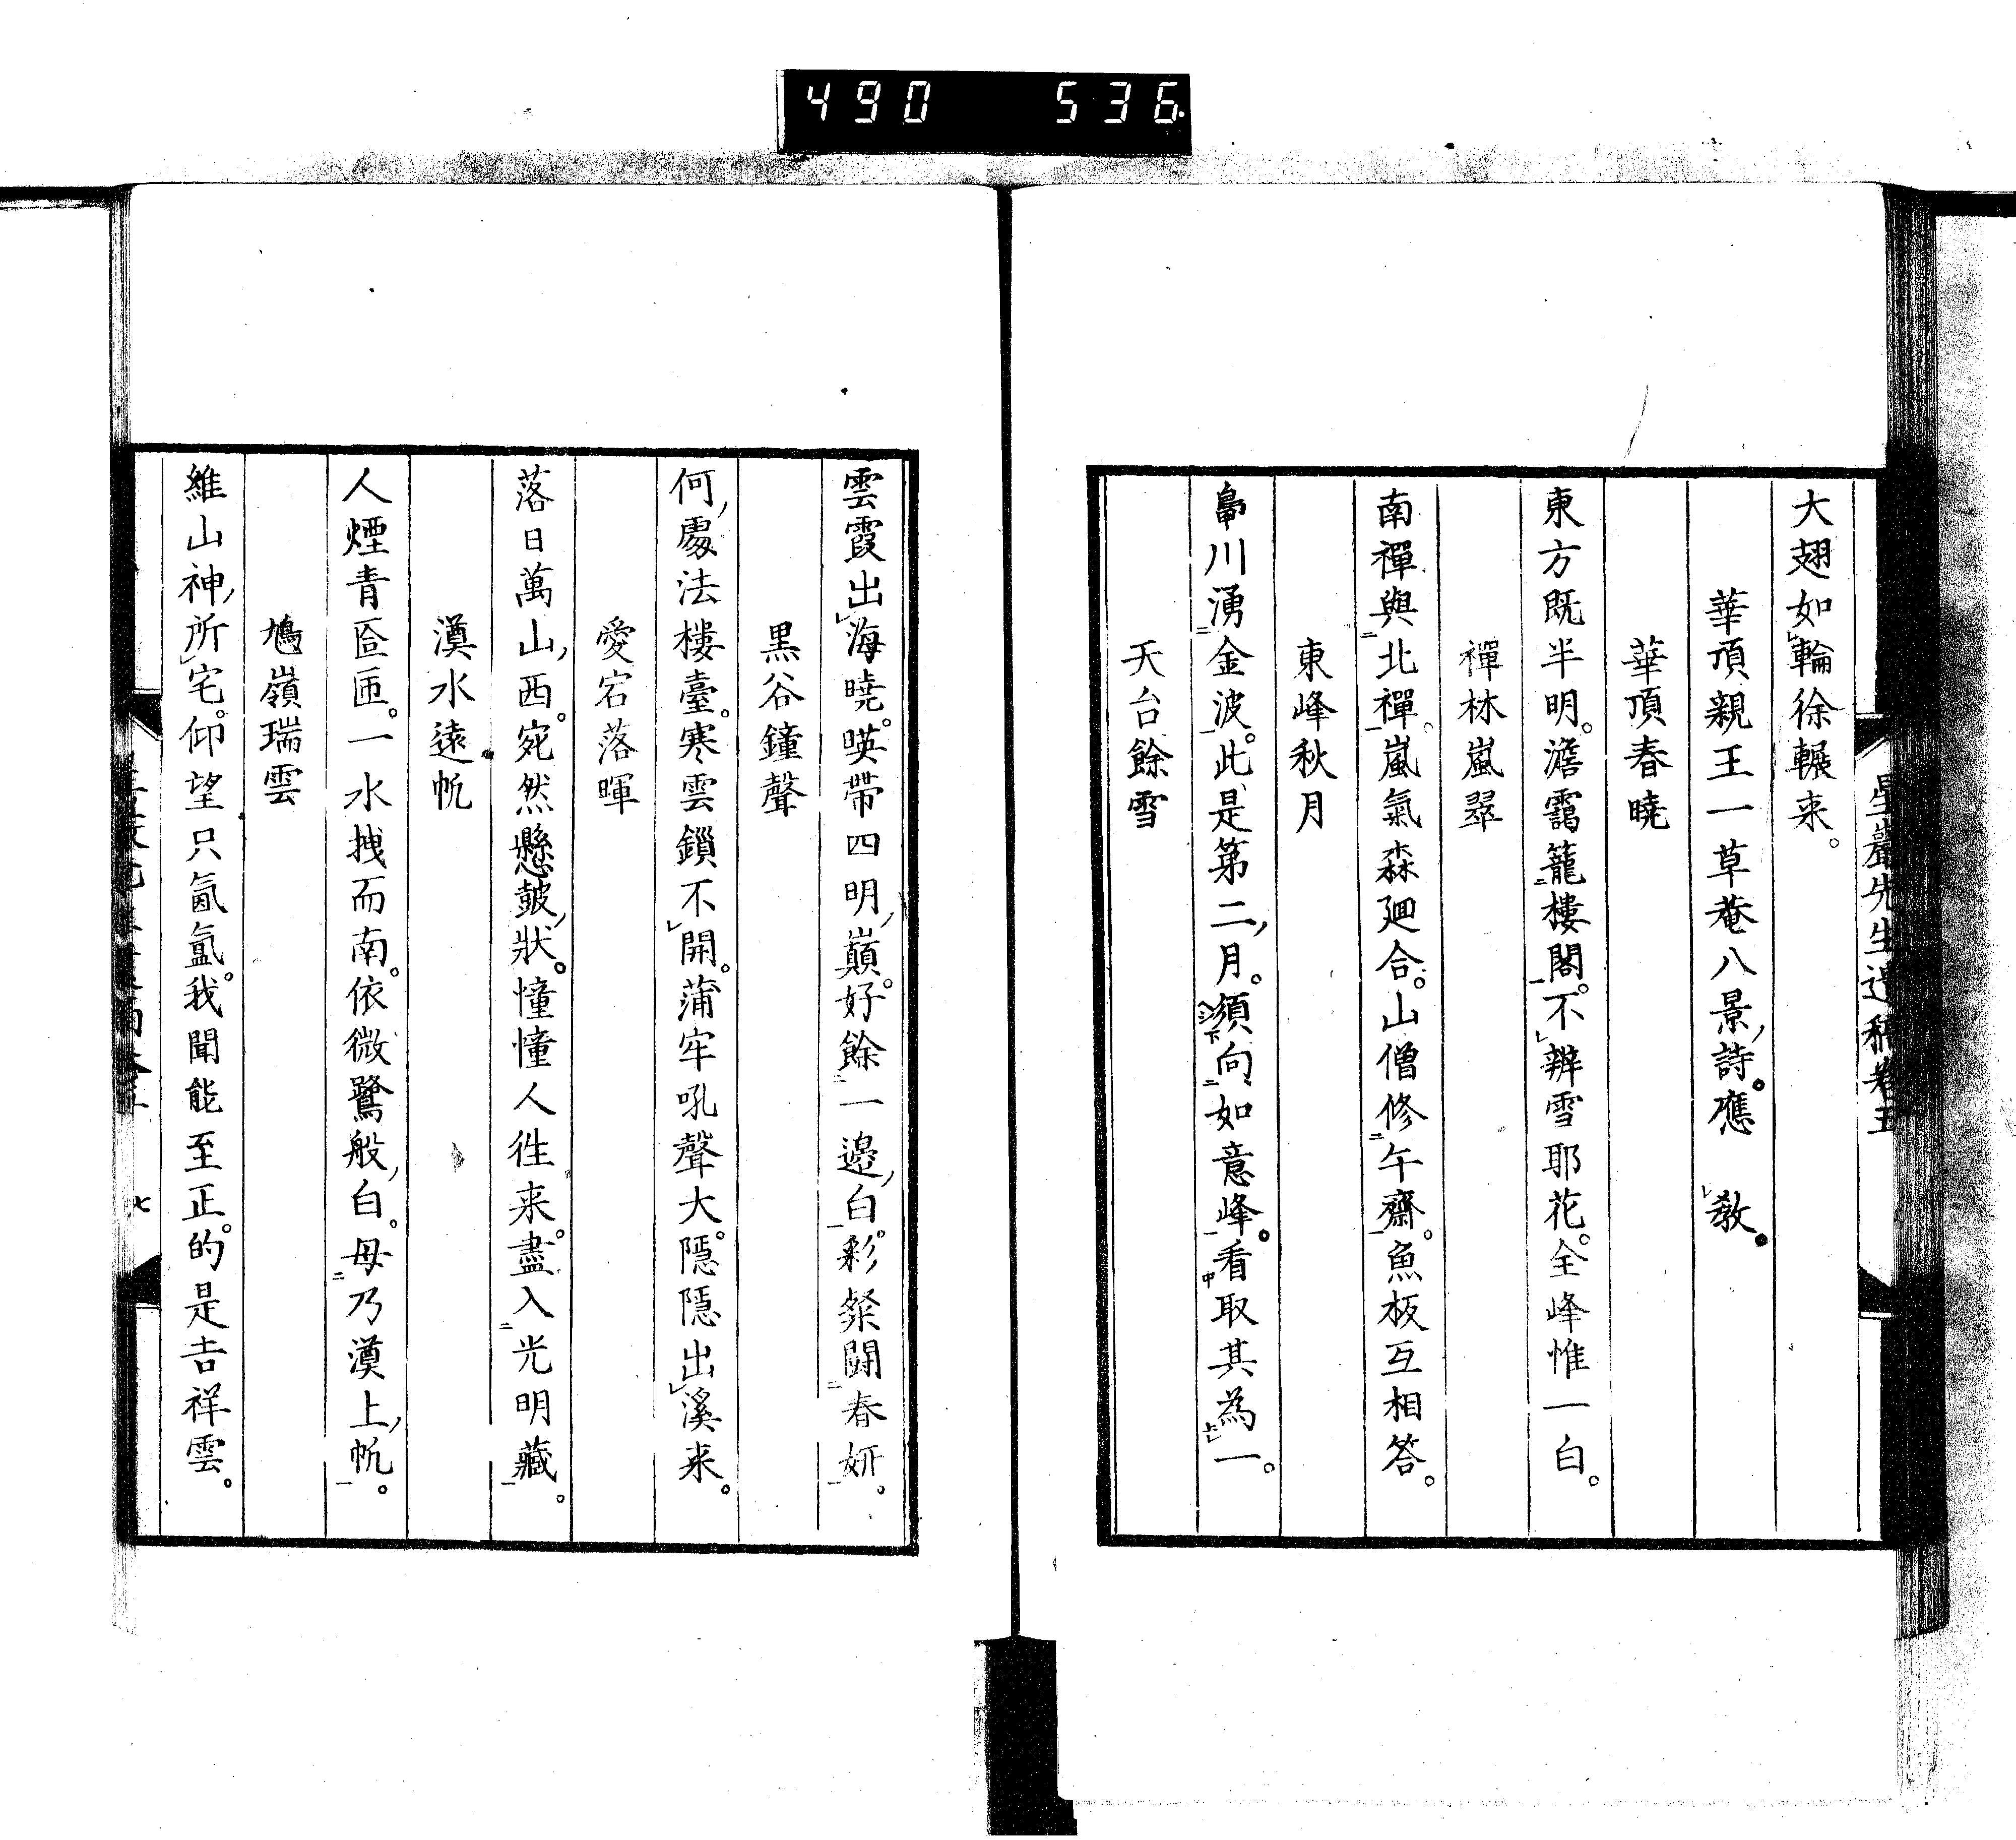 490 536
星巖先生遺稿卷五
大翅如輪徐輾来。
華頂親王一草菴八景詩。應 教。
華頂春曉
東方既半明。澹靄籠樓閣。不辨雪耶花。全峰惟一白。
禪林嵐翠
南禪與北禪。嵐氣森廻合。山僧修午齋。魚板互相答。
東峰秋月
鳧川湧金波。此是第二月。須向如意峰。看取其為一。
天台餘雪
雲霞出海曉。暎帶四明巔。好餘一邊白。彩粲鬪春妍。
黒谷鐘聲
何處法樓臺。寒雲鎖不開。蒲牢吼聲大。隱隱出溪来。
愛宕落暉
落日萬山西。宛然懸鼓狀。憧憧人徃来。盡入光明藏。
澱水遠帆
人煙青匼匝。一水拽而南。依微鷺般白。毋乃澱上帆。
鳩嶺瑞雲
維山神所宅。仰望只氤氳。我聞能至正。的是吉祥雲。
七